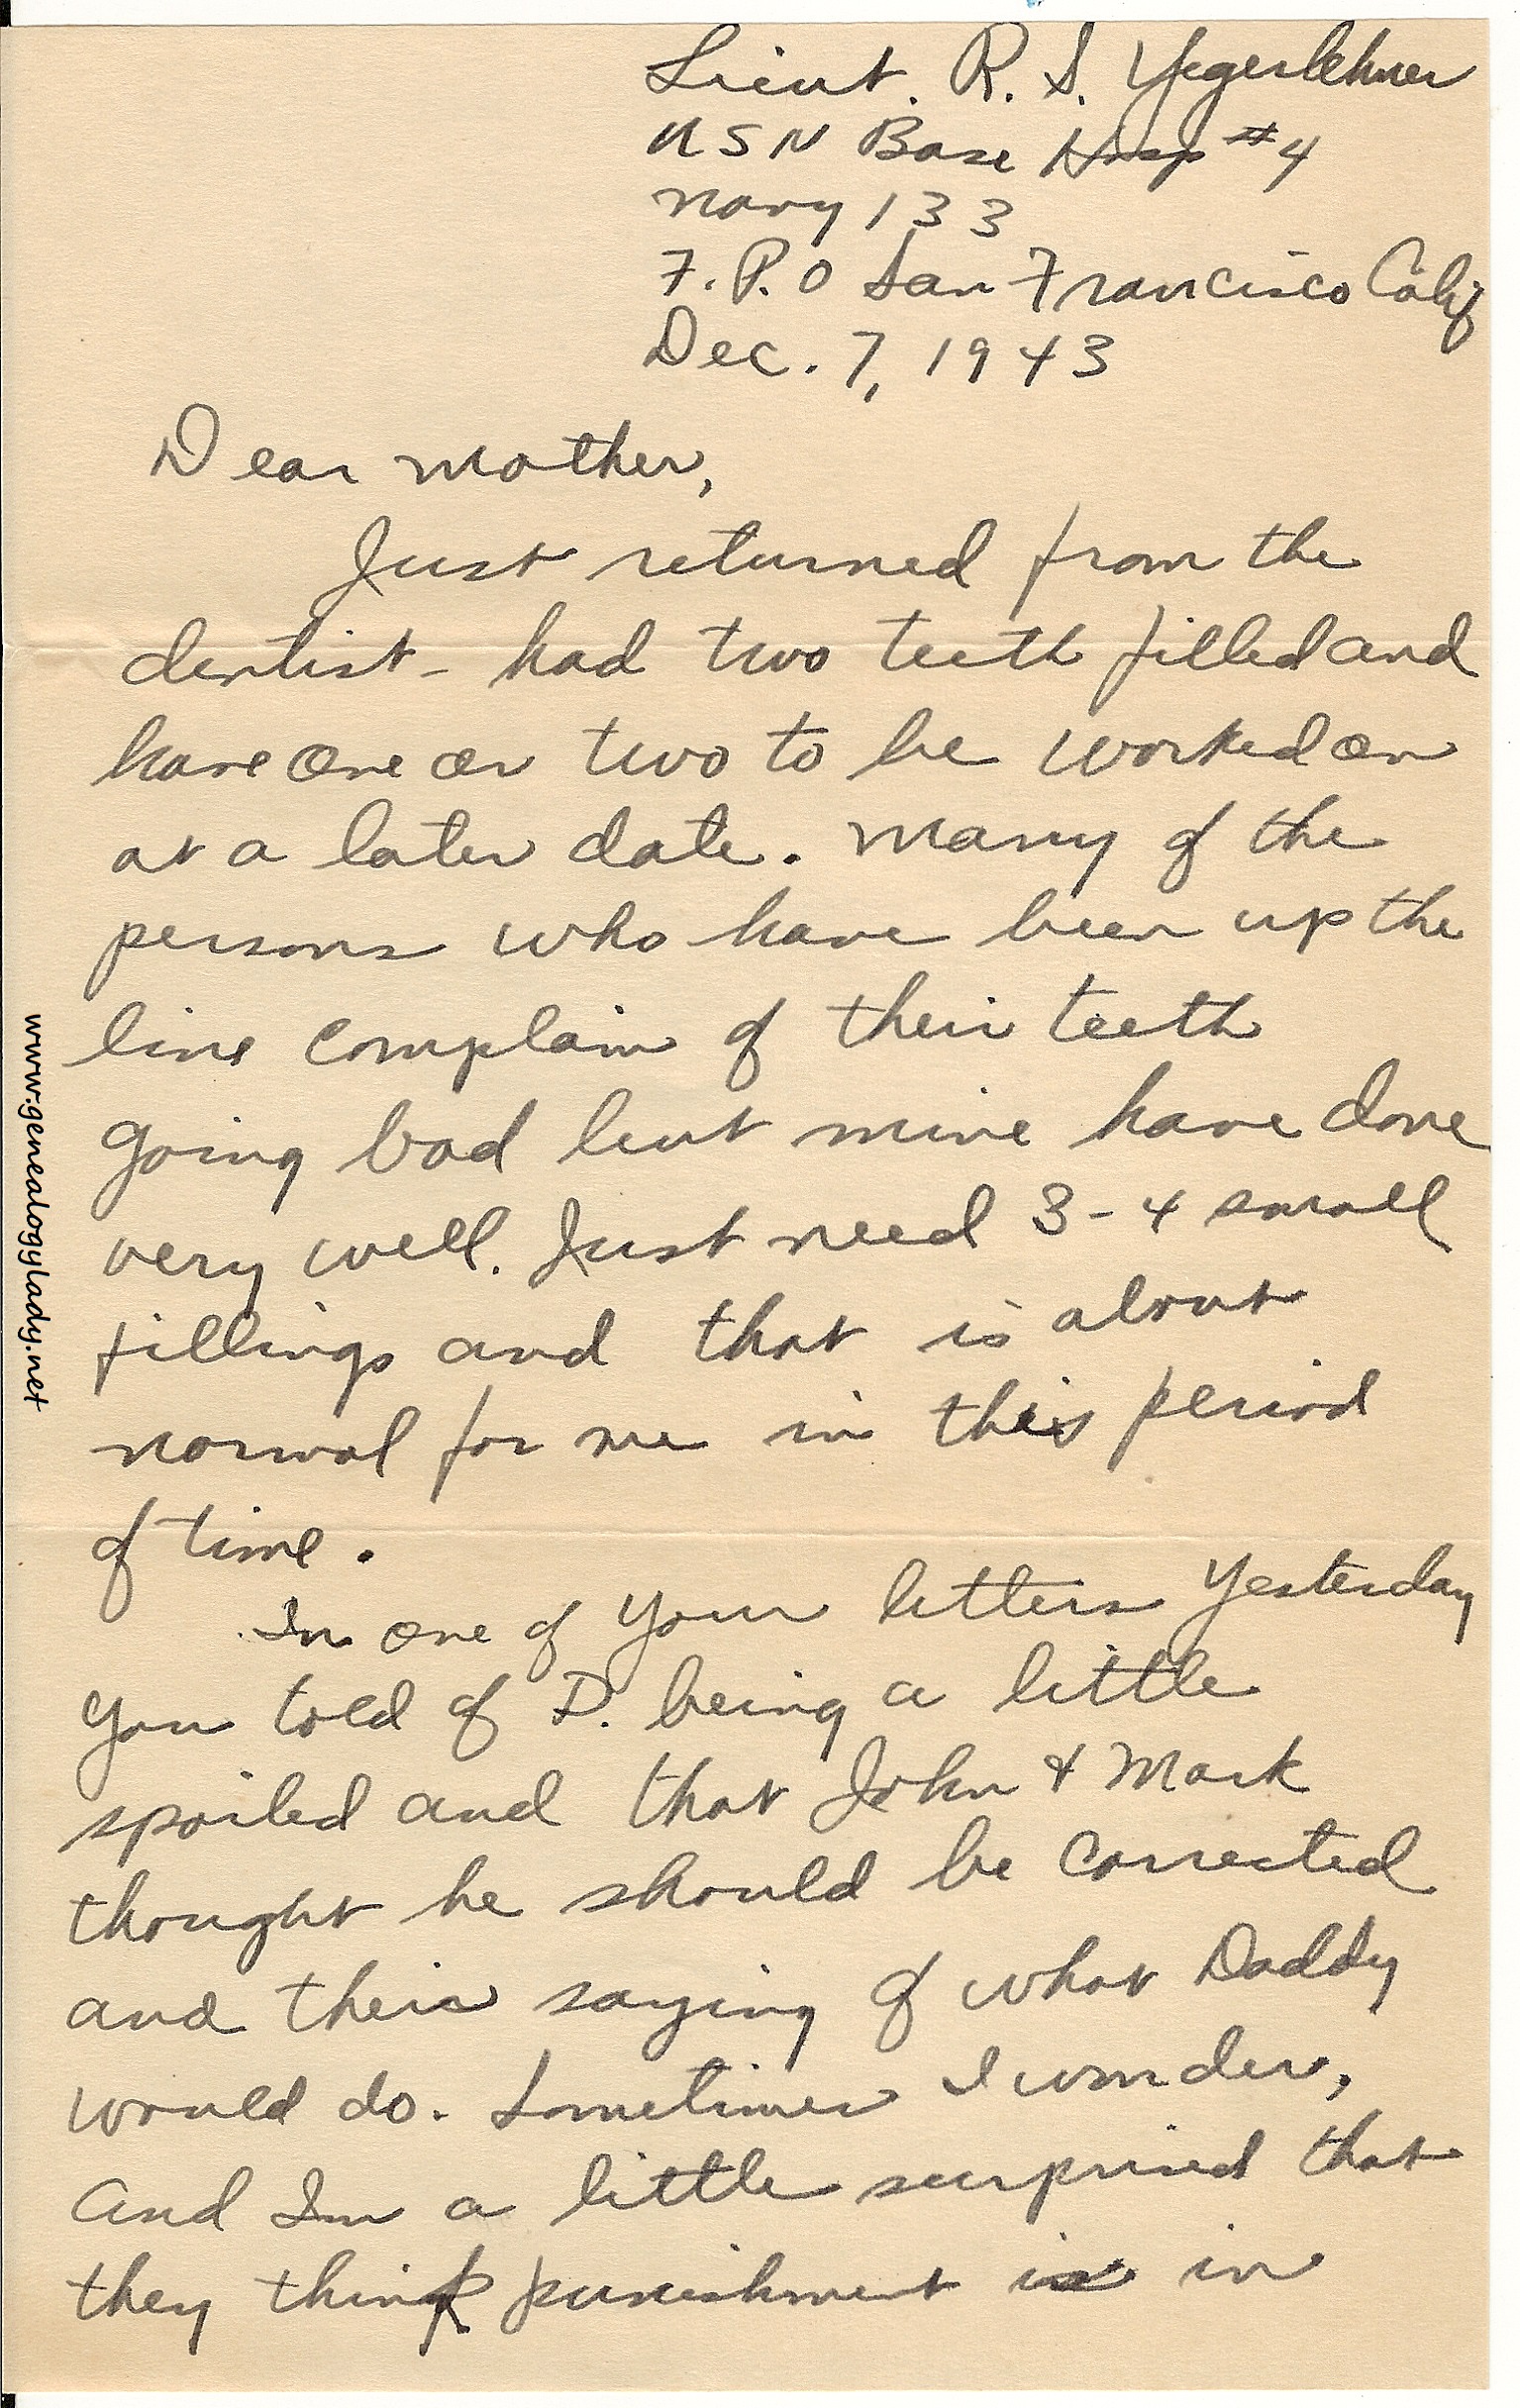 Lieut. R. S. Yegerlehner
USN Base Hosp #4
Navy 133
F. P. O San Francisco Calif
Dec. 7, 1943
Dear Mother,
Just returned from the
dentist - had two teeth filled and
have one or two to be worked on
at a later date. Many of the
persons who have been up the
line complain of their teeth
going bad but mine have done
very well. Just need 3-4 small
fillings and that is about
normal for me in this period
of time.
In one of your letters yesterday
you told of D. being a little
spoiled and that John & Mark
thought he should be corrected
and their saying of what Daddy
would do. Sometimes I wonder,
and Im a little surprised that
they think punishment is in
www.genealogylady.net